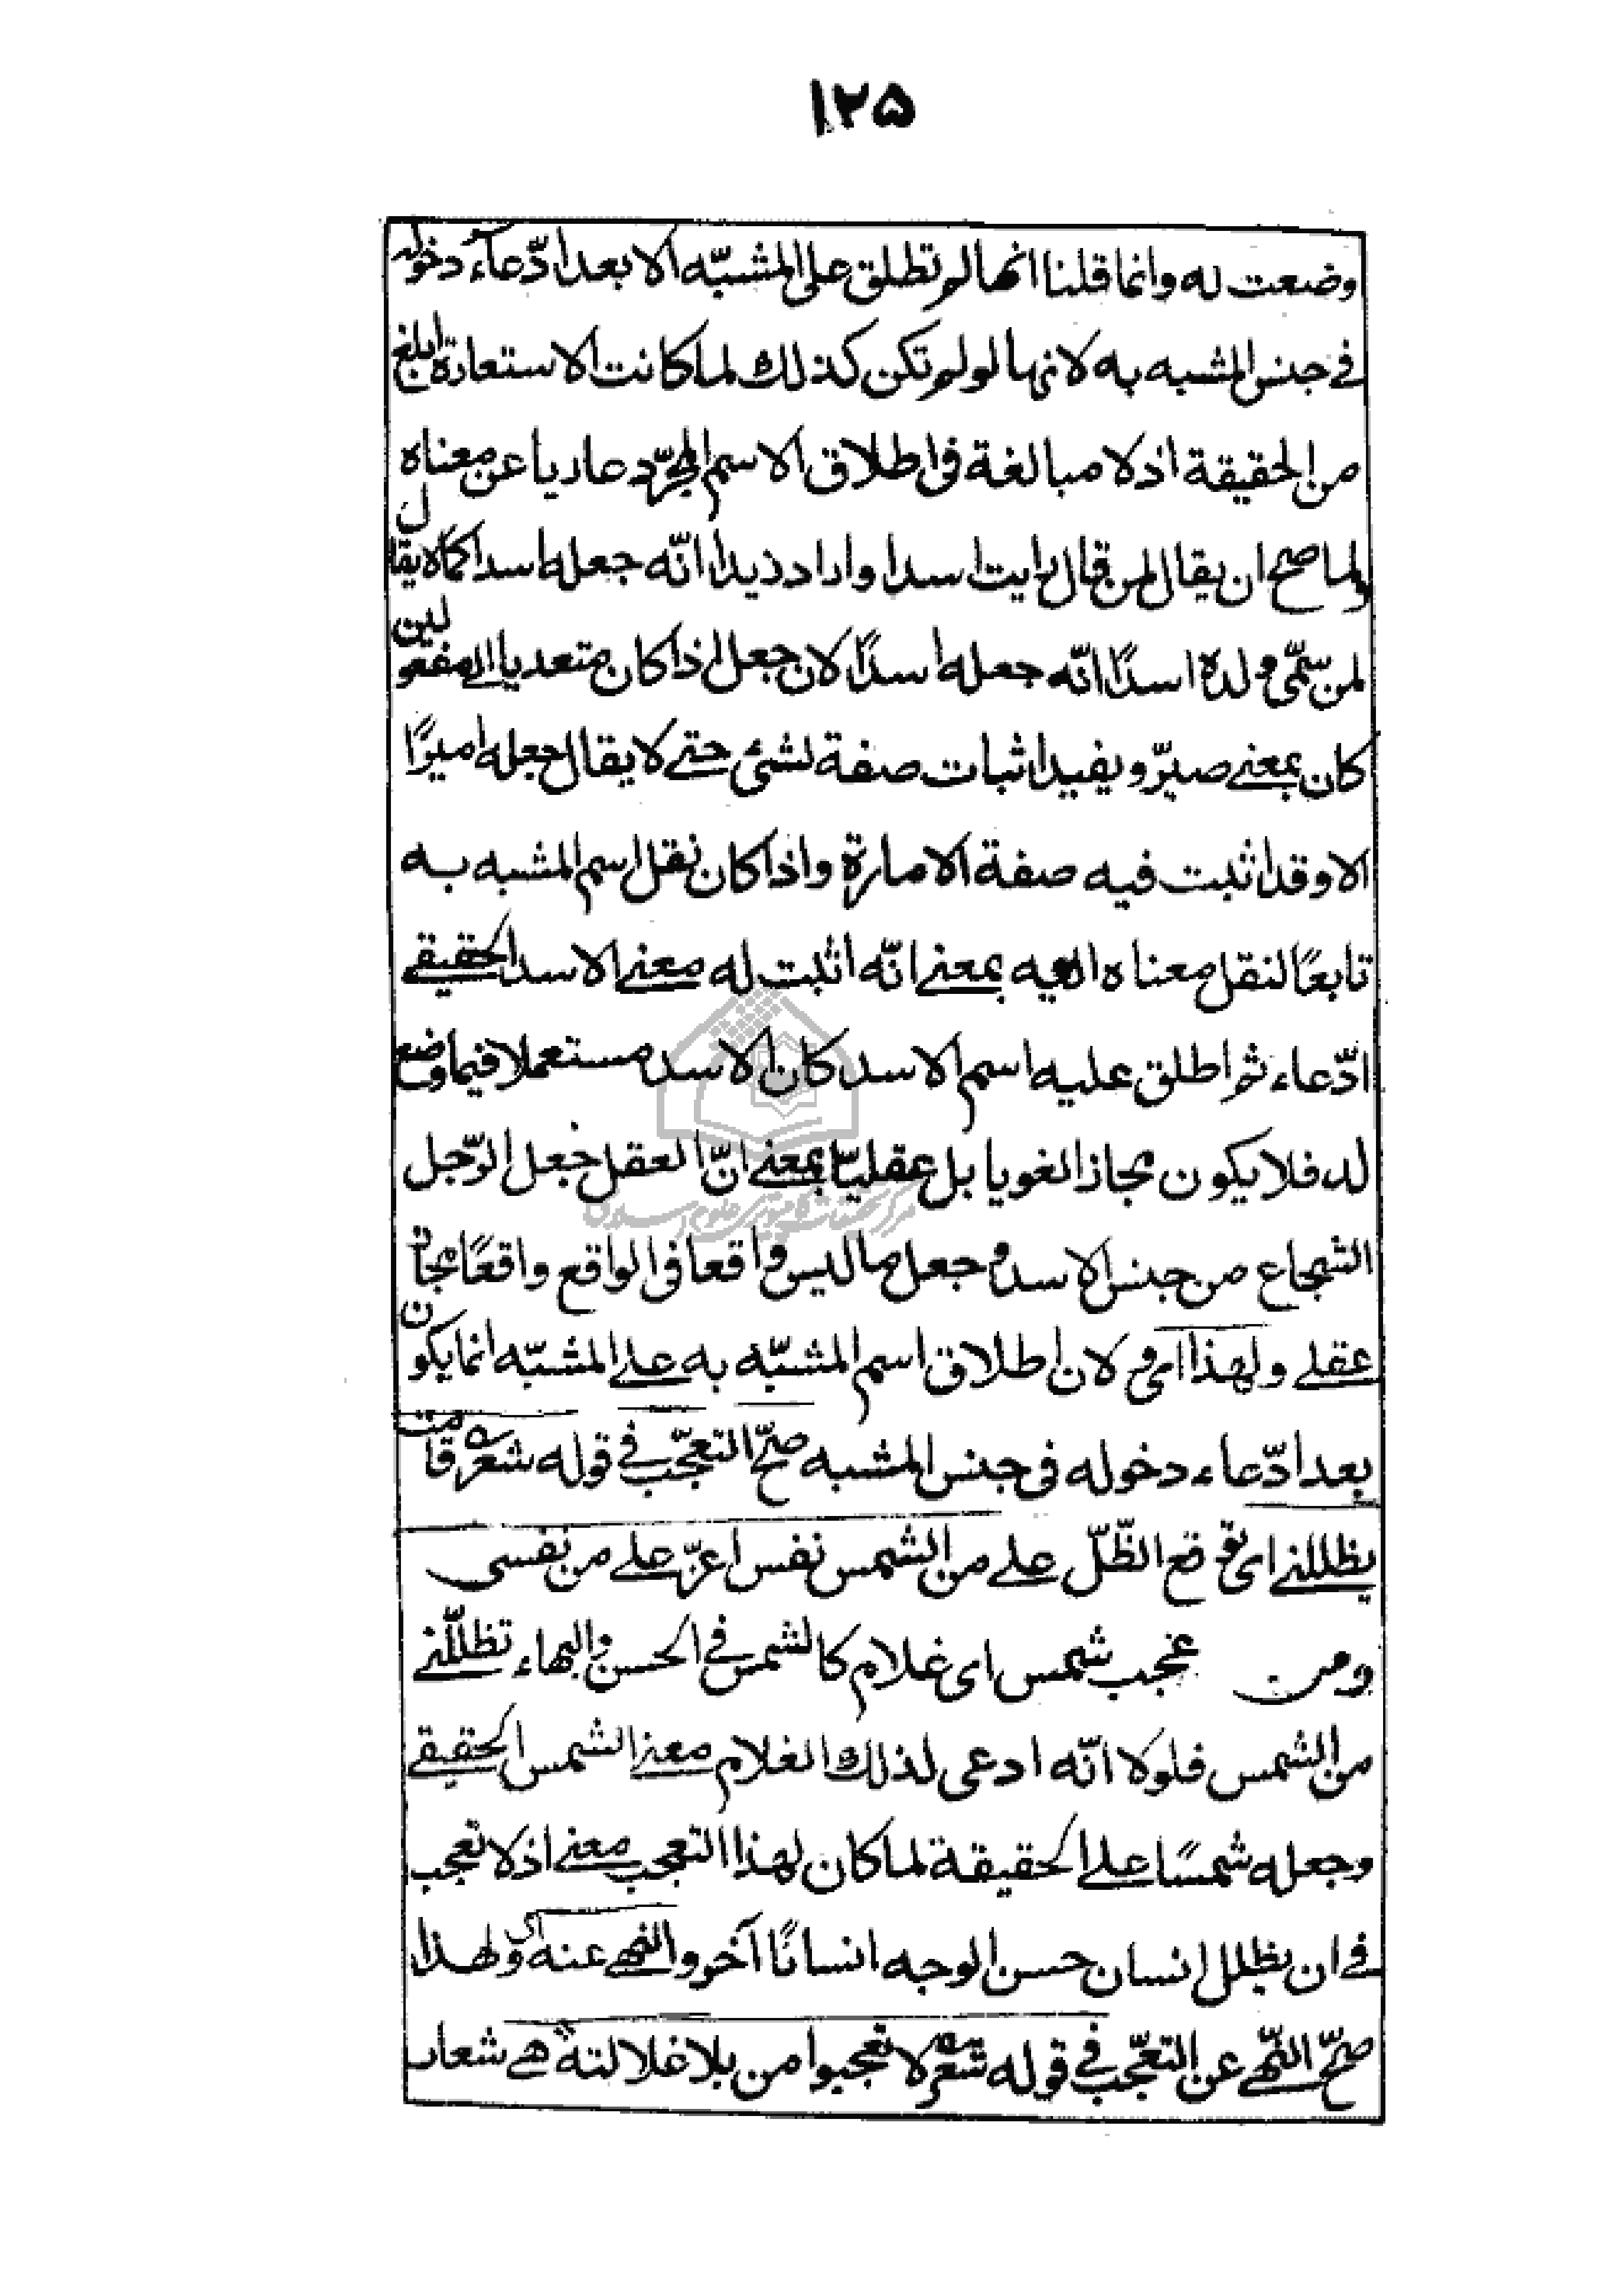 ۱۲۵
وضعت له وانما قلنا انها لم تطلق على المشبّه الا بعد ادّعاء دخوله
في جنس المشبه به لانها لو لم تكن كذلك لما كانت الاستعارة ابلغ
من الحقيقة اذ لا مبالغة فى اطلاق الاسم المجرّد عاريا عن معناه
ولما صح ان يقال لمن قال رايت اسدا واراد زيدا انّه جعله اسدا كما لا يقال
لمن سمّى ولده اسدًا انّه جعله اسدًا لان جعل اذا كان متعديا الى مفعولين
كان بمعنى صيّر ويفيد اثبات صفة لشئ حتى لا يقال جعله اميرًا
الا وقد اثبت فيه صفة الامارة واذا كان نقل اسم المشبه به
تابعًا لنقل معناه اليه بمعنى انّه اثبت له معنى الاسد الحقيقي
ادّعاء ثم اطلق عليه اسم الاسد كان الاسد مستعملا فيما وضع
له فلا يكون مجازا لغويا بل عقليّا بمعنى انّ العقل جعل الرّجل
الشجاع من جنس الاسد وجعل ما ليس واقعا فى الواقع واقعًا مجاز
عقلي ولهذا اى ولان اطلاق اسم المشبّه به على المشبّه انما يكون
بعد ادّعاء دخوله فى جنس المشبه صحّ التعجّب في قوله شعر قامت
يظللني اى توقع الظّلّ على من الشمس نفس اعزّ على من نفسى
ومن عجب شمس اى غلام كالشمس في الحسن والبهاء تظلّلني
من الشمس فلولا انّه ادعى لذلك الغلام معنى الشمس الحقيقي
وجعله شمسًا على الحقيقة لما كان لهذا التعجب معنى اذ لا تعجب
في ان يظلل انسان حسن الوجه انسانًا آخر والنهى عنه اى ولهذا
صحّ النّهى عن التعجّب في قوله شعر لا تعجبوا من بلا غلالته هى شعار